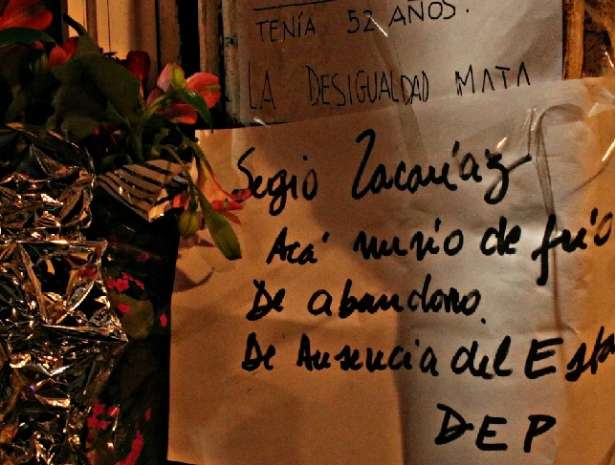 TENÍA 52 AÑOS.
LA DESIGUALDAD MATA
Segio Zacaríaz
Acá murio de frío
De abandono.
De Ausencia del Esta
DEP